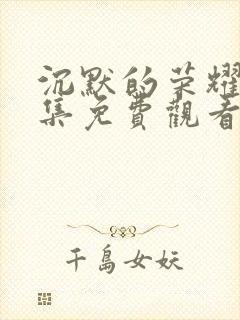 沉默的荣耀
集免費觀看
千島女妖